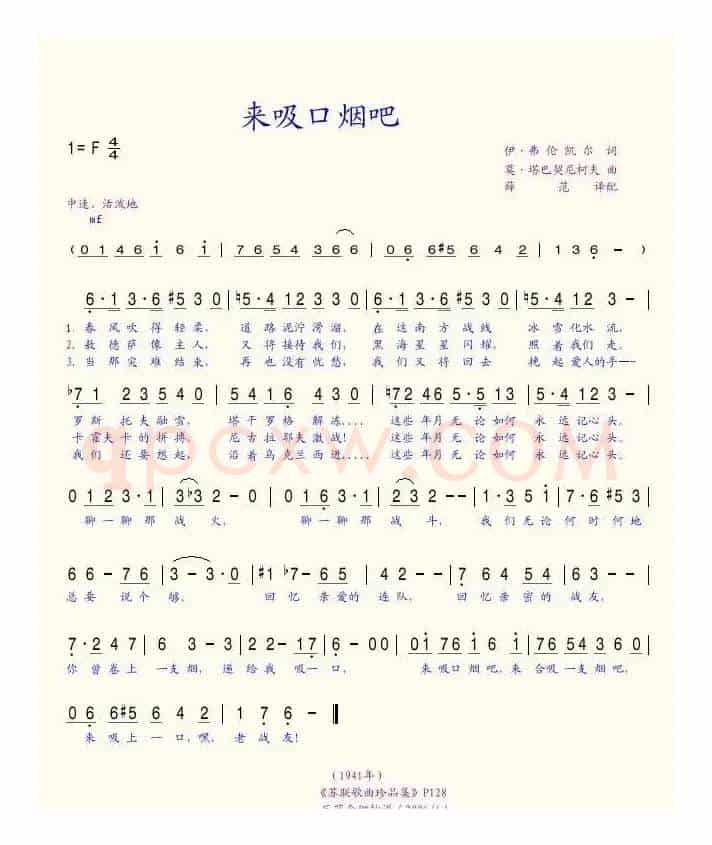 来吸口烟吧
1= F 4/4
伊·弗伦凯尔 词
莫·塔巴契尼柯夫 曲
薛 范 译配
中速、活泼地
mf
( 0 1 4 6 1 6 1 | 7 6 5 4 3 6 6 | 0 6 6 #5 6 4 2 | 1 3 6 - )
6 · 1 3 · 6 #5 3 0 | ♮5 · 4 1 2 3 3 0 | 6 · 1 3 · 6 #5 3 0 | ♮5 · 4 1 2 3 - |
1. 春 风 吹 得 轻 柔, 道 路 泥泞 滑溜, 在 这 南 方 战线 冰 雪 化水 流,
2. 敖 德 萨 像 主 人, 又 将 接待 我们, 黑 海 星 星 闪耀, 照 着 我们 走。
3. 当 那 灾 难 结束, 再 也 没有 忧愁, 我 们 又 将 回去 挽 起 爱人的 手——
♭7 1 2 3 5 4 0 | 2 · 5 5 4 6 · 3 0 | ♮7 2 4 6 5 · 5 1 3 | 5 · 4 1 2 3 0 |
罗 斯 托 夫 融 雪, 塔 干 罗 格 解 冻.... 这些 年月 无 论 如何 永 远 记 心 头。
卡 霍 夫 卡 的 拼 搏, 尼 古 拉 耶 夫 激 战! 这些 年月 无 论 如何 永 远 记 心 头。
我 们 还 要 想 起, 沿 着 乌 克 兰 西 进..... 这些 年月 无 论 如何 永 远 记 心 头。
qpcxw.com
0 1 2 3 · 1 | 3 ♭3 2 - 0 | 0 1 6 3 · 1 | 2 3 2 - 0 | 1 · 3 5 1 | 7 · 6 #5 3 |
聊 一 聊 那 战 火, 聊 一 聊 那 战 斗, 我 们 无 论 何 时 何 地
6 6 - 7 6 | 3 - 3 · 0 | #1 ♭7 - 6 5 | 4 2 - - | 7 6 4 5 4 | 5 7 - - |
总 要 说 个 够, 回 忆 亲 爱 的 连 队, 回 忆 亲 密 的 战 友,
7 · 2 4 7 | 6 · 3 3 | 4 2 - 1 7 | 6 - 0 0 | 0 1 7 6 1 6 1 | 7 6 5 4 3 6 0 |
你 曾 卷 上 一 支 烟, 递 给 我 吸 一 口, 来 吸 口 烟 吧, 来 合 吸 一 支 烟 吧,
0 6 6 #5 6 4 2 | 1 7 6 - ‖
来 吸 上 一 口, 嘿, 老 战 友!
(1941年)
《苏联歌曲珍品集》P128